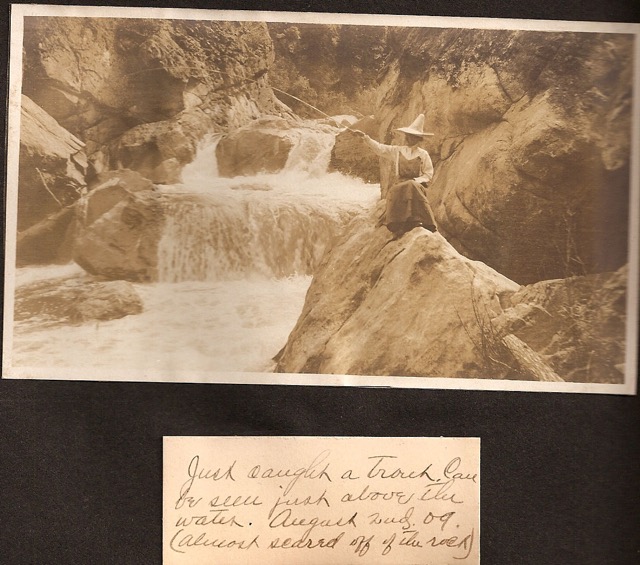 Just caught a trout. Can
be seen just above the
water. August 2nd. 09.
(almost scared off of the rock)